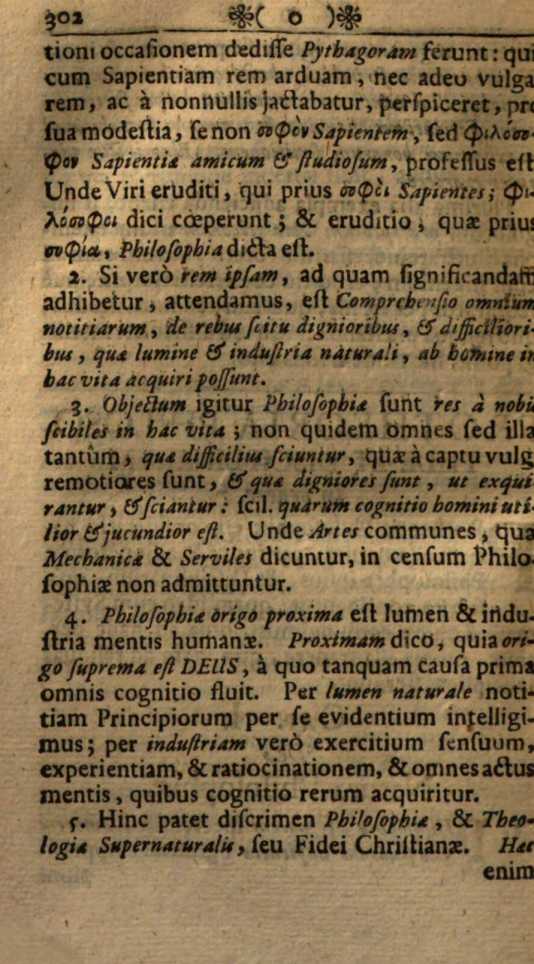 302 ( o )
tioni occaſionem dediſſe Pythagoram ferunt: qui
cum Sapientiam rem arduam, nec adeo vulga
rem, ac à nonnullis jactabatur, perſpiceret, pro
ſua modeſtia, ſe non σοφὸν Sapientem, ſed Φιλόσο-
φον Sapientiæ amicum & ſtudioſum, profeſſus eſt
Unde Viri eruditi, qui prius σοφοὶ Sapientes; Φι-
λόσοφοι dici cœperunt; & eruditio, quæ prius
σοφία, Philoſophia dicta eſt.
2. Si verò rem ipſam, ad quam ſignificandam
adhibetur, attendamus, eſt Comprehenſio omnium
notitiarum, de rebus ſcitu dignioribus, & difficiliori-
bus, quæ lumine & induſtria naturali, ab homine in
hac vita acquiri poſſunt.
3. Objectum igitur Philoſophiæ ſunt res à nobis
ſcibiles in hac vita; non quidem omnes ſed illa
tantùm, quæ difficiliùs ſciuntur, quæ à captu vulg
remotiores ſunt, & quæ digniores ſunt, ut exqui
rantur, & ſciantur: ſcil. quarum cognitio homini uti-
lior & jucundior eſt. Unde Artes communes, quæ
Mechanicæ & Serviles dicuntur, in cenſum Philo-
ſophiæ non admittuntur.
4. Philoſophiæ origo proxima eſt lumen & indu-
ſtria mentis humanæ. Proximam dico, quia ori-
go ſuprema eſt DEUS, à quo tanquam cauſa prima
omnis cognitio fluit. Per lumen naturale noti-
tiam Principiorum per ſe evidentium intelligi-
mus; per induſtriam verò exercitium ſenſuum,
experientiam, & ratiocinationem, & omnes actus
mentis, quibus cognitio rerum acquiritur.
5. Hinc patet diſcrimen Philoſophiæ, & Theo-
logiæ Supernaturalis, ſeu Fidei Chriſtianæ. Hæc
enim